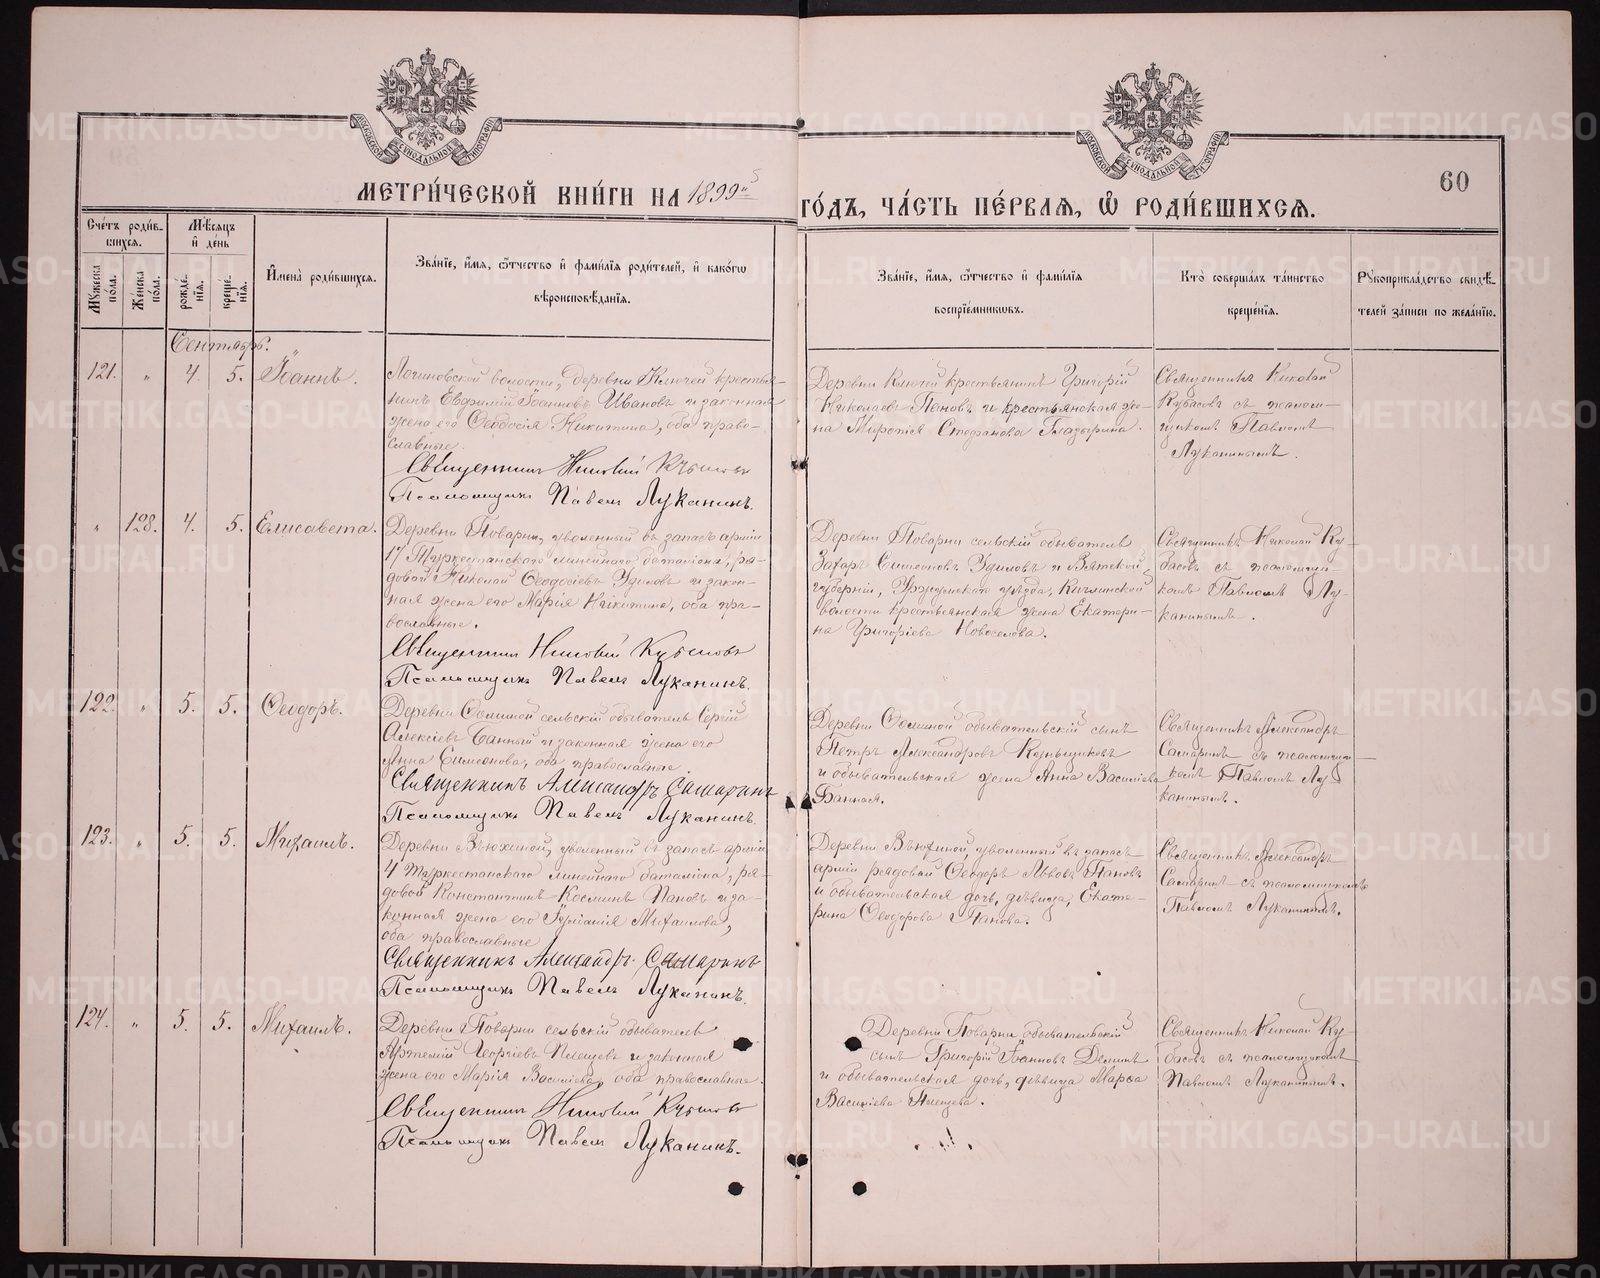 МОСКОВСКОЙ СѴНОДАЛЬНОЙ ТИПОГРАФІИ
МОСКОВСКОЙ СѴНОДАЛЬНОЙ ТИПОГРАФІИ
60
МЕТРИ́ЧЕСКОЙ КНИ́ГИ НА 1899й ГО́ДЪ, ЧА́СТЬ ПЕ́РВАѦ, Ѡ РОДИ́ВШИХСѦ.
Сче́тъ роди́вшихсѧ.
Мꙋ́жеска по́ла.
Же́нска по́ла.
Мѣ́сѧцъ и҆ де́нь
рожде́нїѧ.
креще́нїѧ.
И҆мена̀ роди́вшихсѧ.
Зва́нїе, и҆́мѧ, ѻ҆́тчество и҆ фами́лїѧ роди́телей, и҆ како́гѡ
вѣроисповѣ́данїѧ.
Зва́нїе, и҆́мѧ, ѻ҆́тчество и҆ фами́лїѧ
воспрїе́мникѡвъ.
Кто̀ соверша́лъ та́инство
креще́нїѧ.
Рꙋкоприкла́дство свидѣ́телей за́писи по жела́нїю.
Сентябрь.
121. " 4. 5. Іоаннъ.
Логиновской волости, деревни Ключей крестья-
нинъ Евфимій Іоанновъ Ивановъ и законная
жена его Ѳеодосія Никитина, оба право-
славные.
Священникъ Николай Кубасовъ
Псаломщикъ Павелъ Луканинъ.
Деревни Ключей крестьянинъ Григорій
Николаевъ Пановъ и крестьянская же-
на Миропія Стефанова Гладырина.
Священникъ Николай
Кубасовъ съ псалом-
щикомъ Павломъ
Луканинымъ.
" 128. 4. 5. Елисавета.
Деревни Поварни, уволенный въ запасъ арміи
17 Туркестанскаго линейнаго баталіона, ря-
довой Николай Ѳеодосіевъ Удиловъ и закон-
ная жена его Марія Никитина, оба пра-
вославные.
Священникъ Николай Кубасовъ
Псаломщикъ Павелъ Луканинъ.
Деревни Поварни сельскій обыватель
Захаръ Симеоновъ Удиловъ и Вятской
губерніи, Уржумскаго уѣзда, Кичминской
волости крестьянская жена Екатери-
на Григоріева Новоселова.
Священникъ Николай Ку-
басовъ съ псаломщи-
комъ Павломъ Лу-
канинымъ.
122. " 5. 5. Ѳеодоръ.
Деревни сельскій обыватель Сергій
Алексіевъ Банный и законная жена его
Анна Симеонова, оба православные
Священникъ Александръ Самаринъ
Псаломщикъ Павелъ Луканинъ.
Деревни обывательскій сынъ
Петръ Александровъ
и обывательская жена Анна Василіева
Банная.
Священникъ Александръ
Самаринъ съ псаломщи-
комъ Павломъ Лу-
канинымъ.
123. " 5. 5. Михаилъ.
Деревни Вьюхиной, уволенный въ запасъ арміи
4 Туркестанскаго линейнаго баталіона, ря-
довой Константинъ Косминъ Пановъ и за-
конная жена его Іуліанія Михаилова,
оба православные
Священникъ Александръ Самаринъ
Псаломщикъ Павелъ Луканинъ.
Деревни Вьюхиной уволенный въ запасъ
арміи рядовой Ѳеодоръ Львовъ Пановъ
и обывательская дочь, дѣвица, Екате-
рина Ѳеодорова Панова.
Священникъ Александръ
Самаринъ съ псаломщикомъ
Павломъ Луканинымъ.
124. " 5. 5. Михаилъ.
Деревни Поварни сельскій обыватель
Артемій Георгіевъ Плещевъ и законная
жена его Марія Василіева, оба православные.
Священникъ Николай Кубасовъ
Псаломщикъ Павелъ Луканинъ.
Деревни Поварни, обывательскій
сынъ Григорій Іоанновъ Деминъ
и обывательская дочь, дѣвица Марѳа
Василіева Плещева.
Священникъ Николай Ку-
басовъ съ псаломщикомъ
Павломъ Луканинымъ.
METRIKI.GASO-URAL.RU